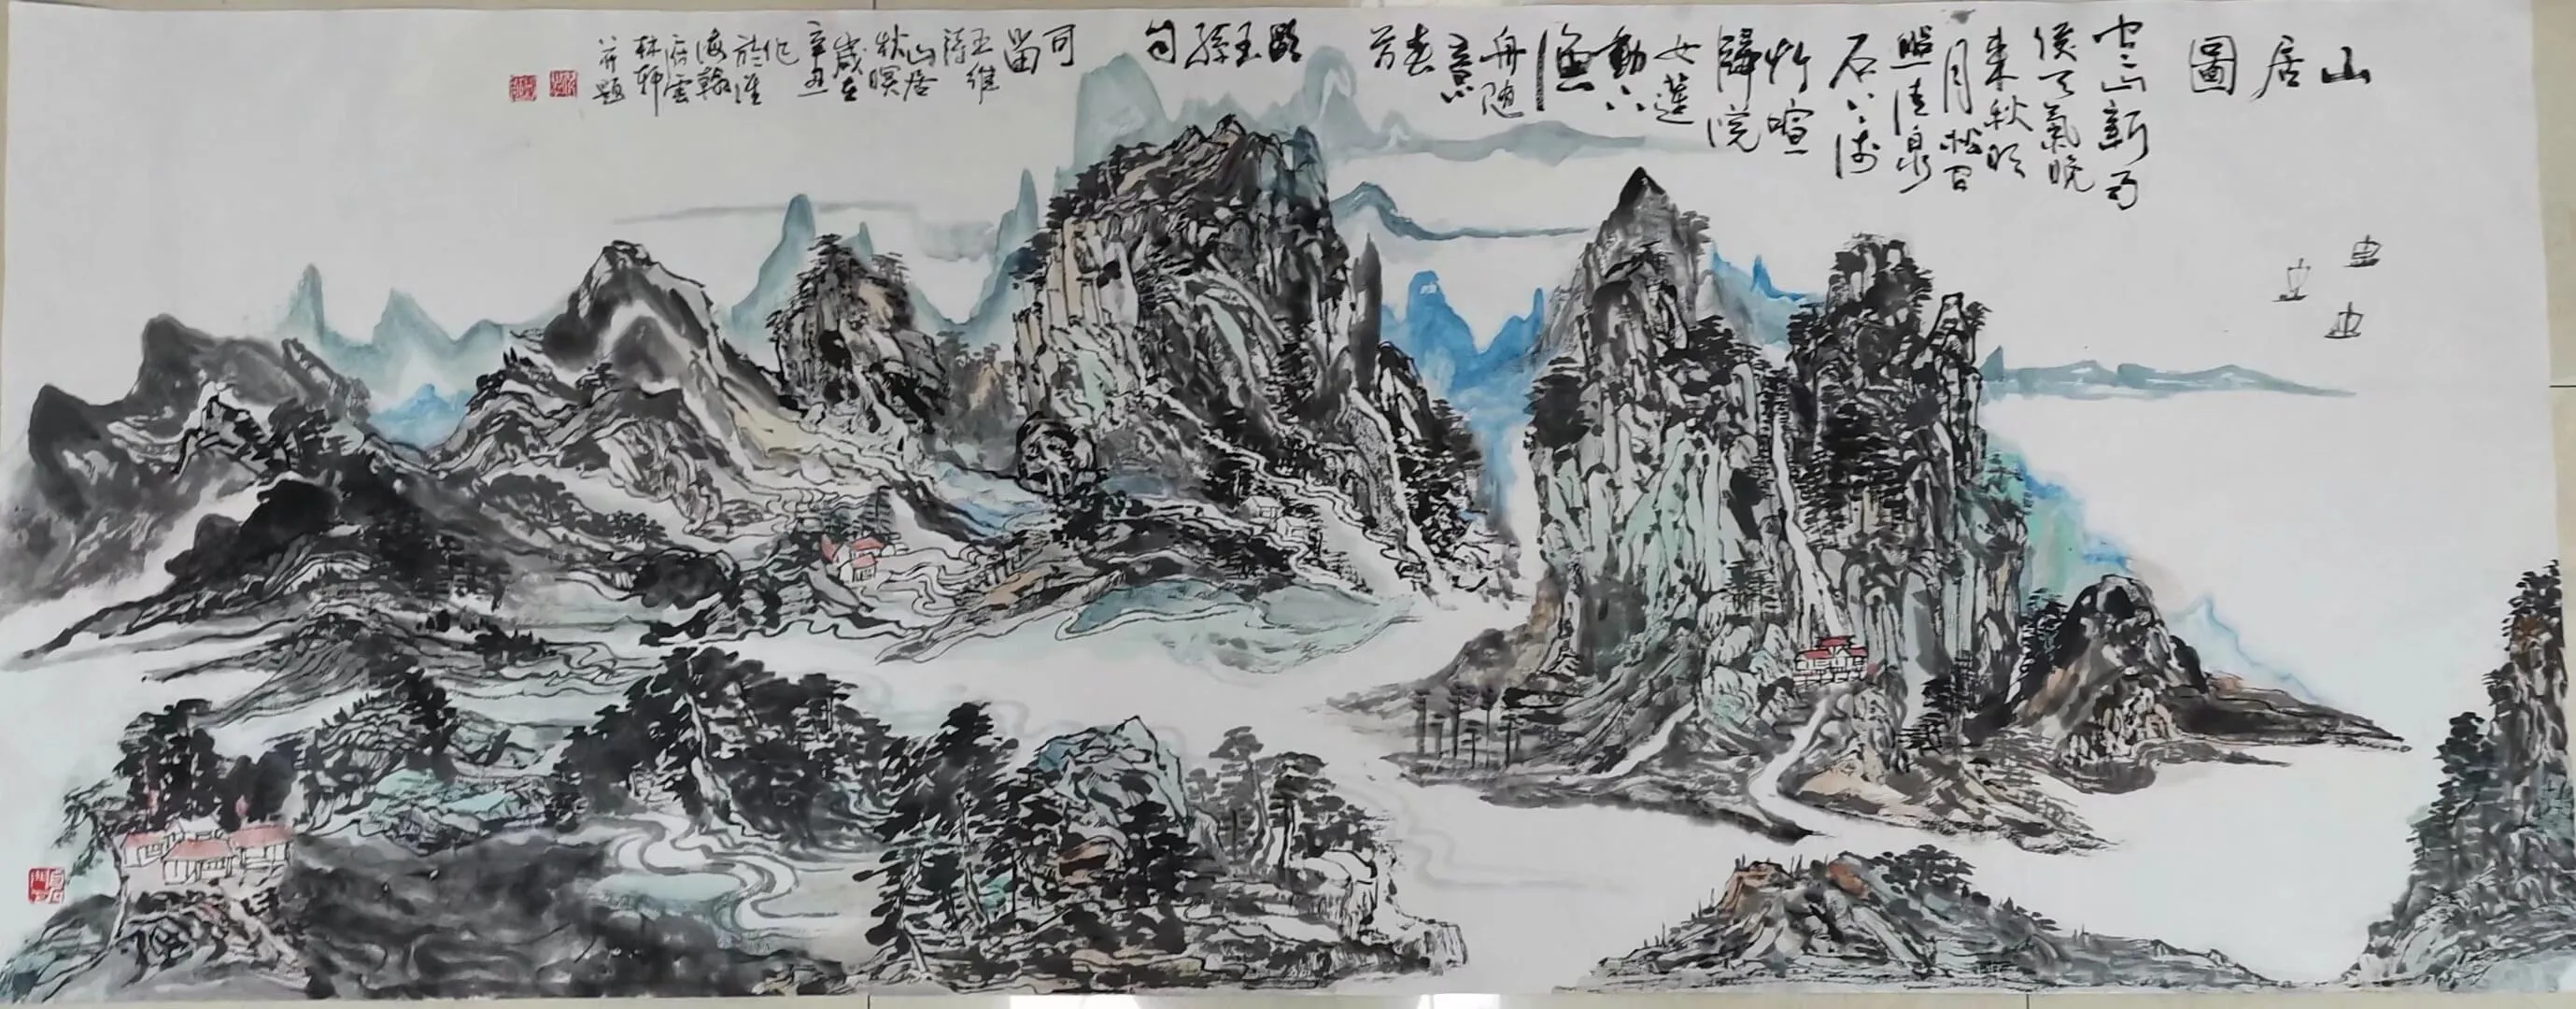 山居圖
空山新雨
後天氣晚
來秋明
月松間
照清泉
石上流
竹喧
歸浣
女蓮
動下
漁
舟隨
意
春
芳
歇
王
孫
自
可
留
王維
詩
山居
秋暝
歲在
辛丑
作
於淮
海翰
府雲
林軒
并題